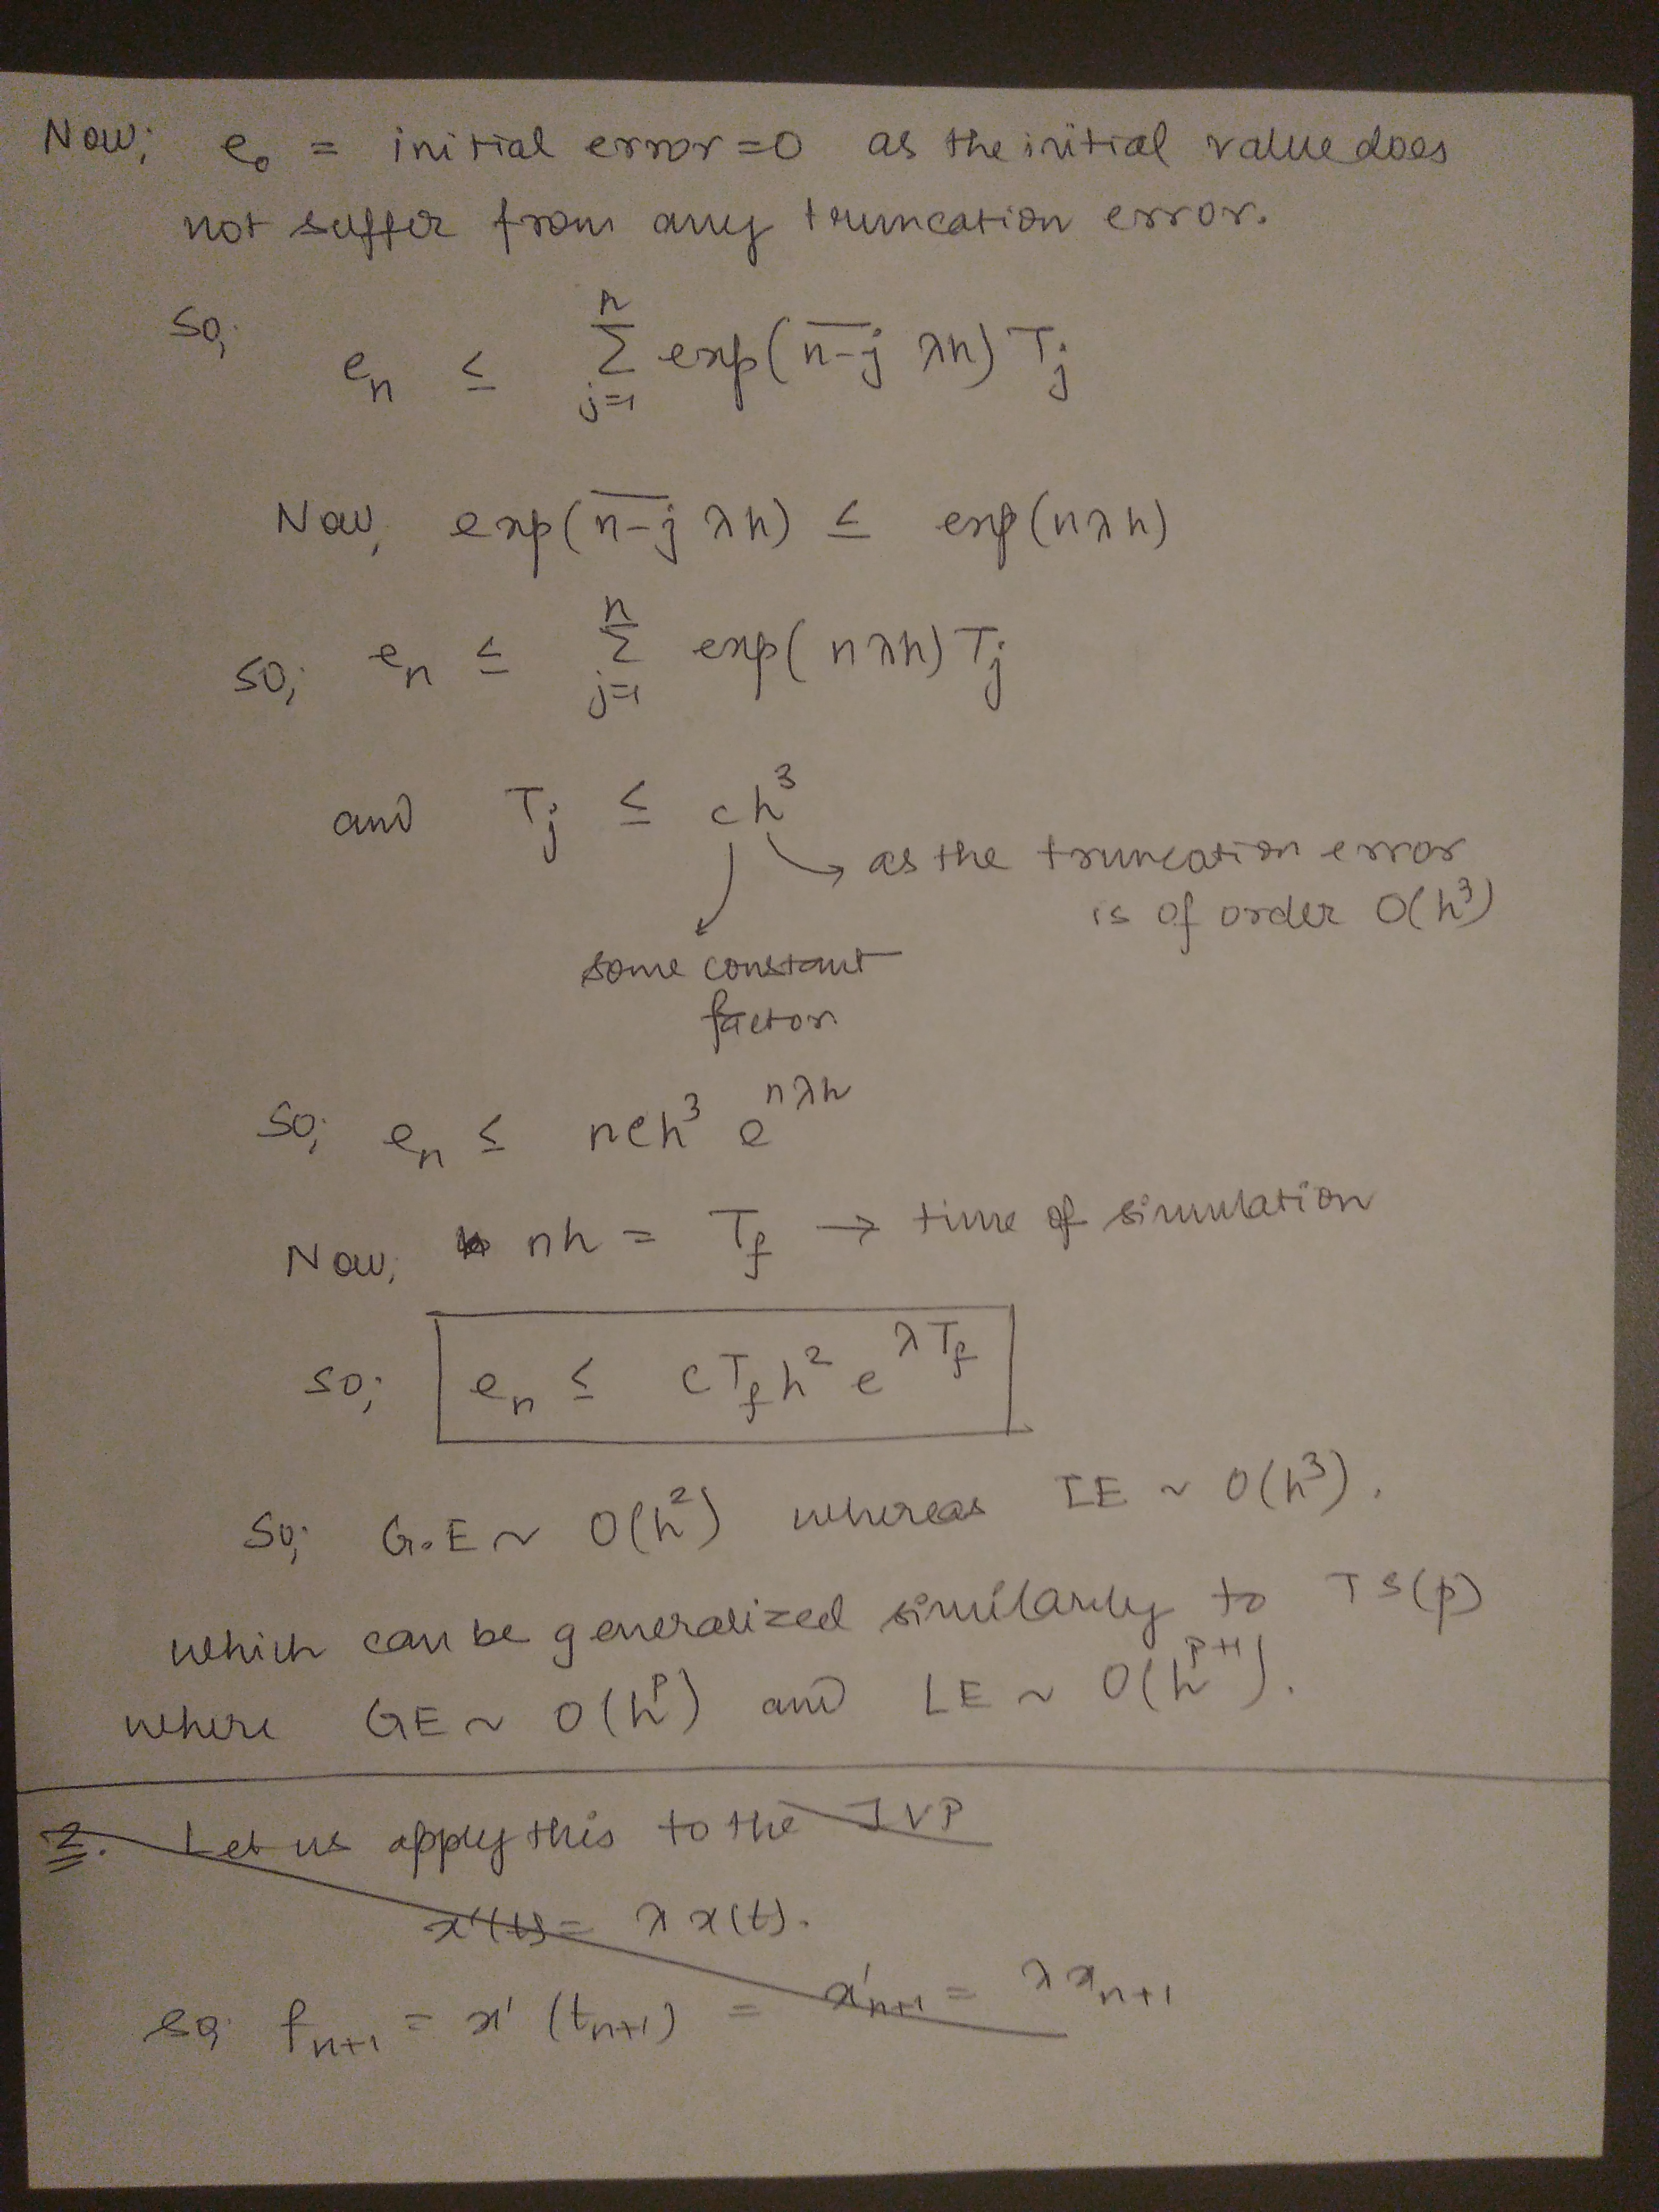 Now; e₀ = initial error = 0 as the initial value does
not suffer from any truncation error.
So, eₙ ≤ Σⱼ₌₁ⁿ exp(n̅-̅j̅ λh) Tⱼ
Now, exp(n̅-̅j̅ λh) ≤ exp(nλh)
So; eₙ ≤ Σⱼ₌₁ⁿ exp(nλh) Tⱼ
and Tⱼ ≤ ch³
→ as the truncation error
is of order O(h³)
some constant
factor
So; eₙ ≤ nch³ e^{nλh}
Now; nh = T_f → time of simulation
So; eₙ ≤ cT_f h² e^{λT_f}
So; G.E ~ O(h²) whereas LE ~ O(h³).
which can be generalized similarly to TS(p)
where GE ~ O(h^p) and LE ~ O(h^{p+1}).
2. Let us apply this to the IVP
x'(t) = λx(t).
so fₙ₊₁ = x'(tₙ₊₁) = x'ₙ₊₁ = λxₙ₊₁